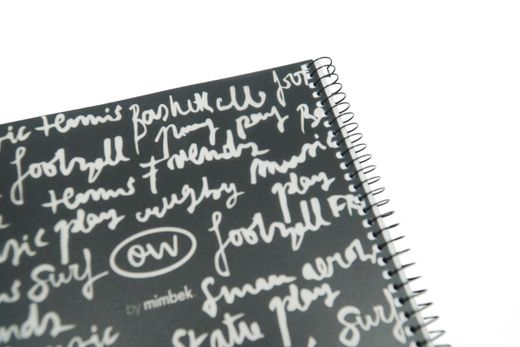 tennis Basketball foo
football play play
tennis Friends music
play rugby play
surf OW football FR
by mimbek.
music skate play